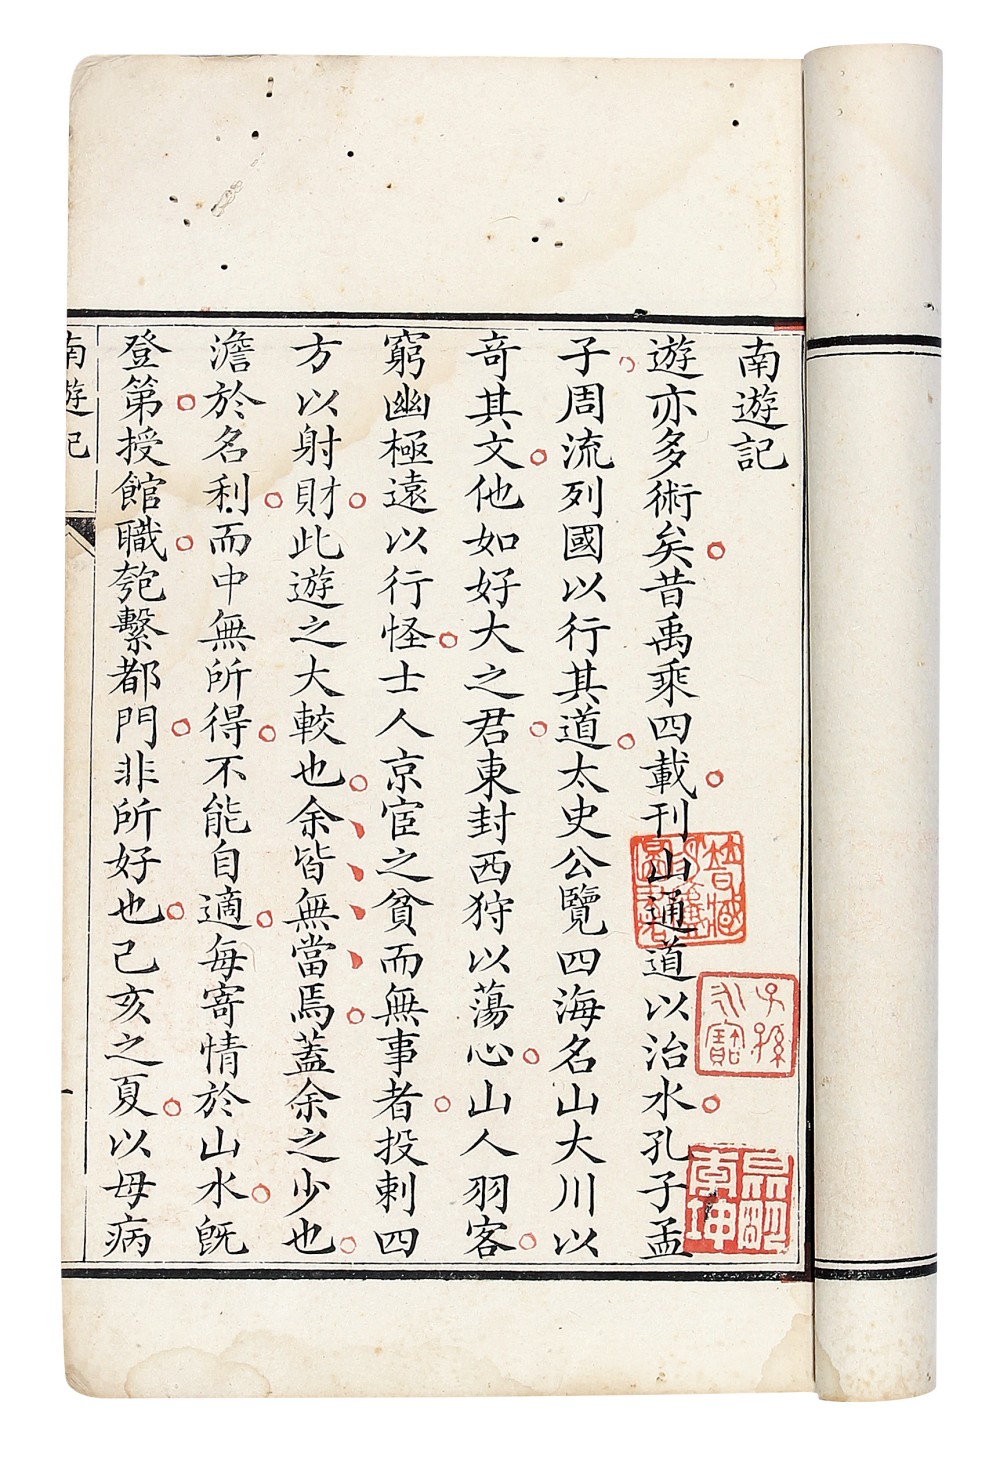 南遊記
遊亦多術矣昔禹乘四載刊山通道以治水孔子孟
子周流列國以行其道太史公覽四海名山大川以
奇其文他如好大之君東封西狩以蕩心山人羽客
窮幽極遠以行怪士人京宦之貧而無事者投刺四
方以射財此遊之大較也余皆無當焉蓋余之少也
澹於名利而中無所得不能自適每寄情於山水既
登第授館職匏繫都門非所好也己亥之夏以母病
南遊記
子孫
永寶